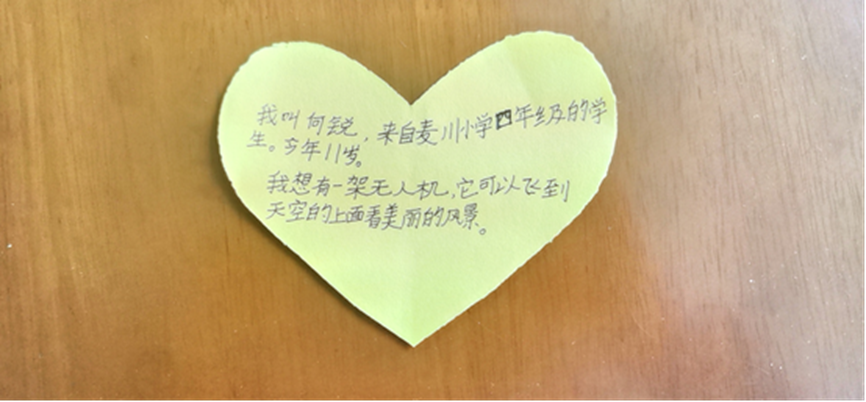 我叫何锐，来自麦川小学四年级的学
生。今年11岁。
我想有一架无人机，它可以飞到
天空的上面看美丽的风景。